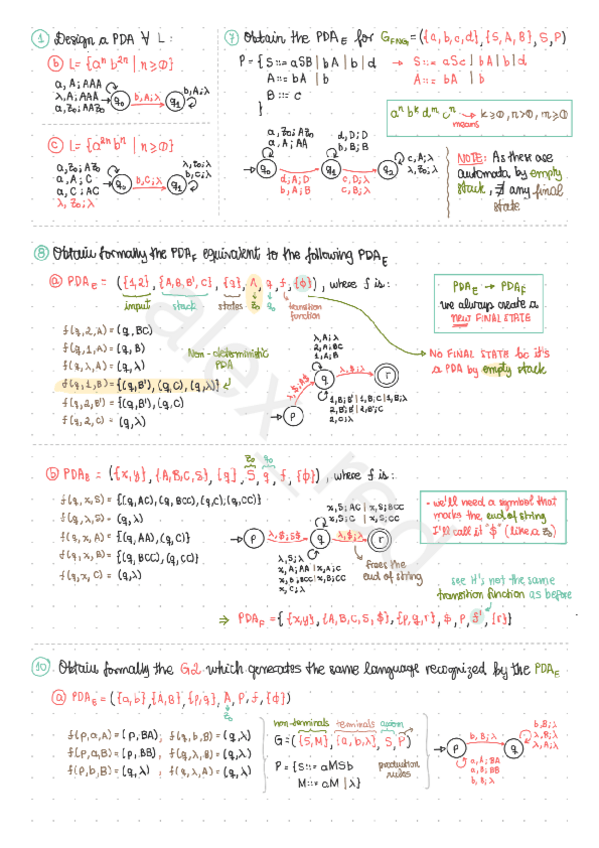 ① Design a PDA ∀ L:
ⓑ L={aⁿ b²ⁿ | n≥0}
a,A;AAA
λ,A;AAA
a,z₀;AAz₀
q₀
b,A;λ
q₁
b,A;λ
ⓒ L={a²ⁿ bⁿ | n≥0}
a,z₀;Az₀
a,A;C
a,C;AC
λ,z₀;λ
q₀
b,C;λ
q₁
λ,z₀;λ
b,C;λ
⑦ Obtain the PDA_E for G_FNG=({a,b,c,d},{S,A,B},S,P)
P={S::=aSB|bA|b|d → S::=aSc|bA|b|d
A::=bA|b A::=bA|b
B::=c
}
aⁿ bᵏ dᵐ cⁿ → k≥0, n>0, m≥0
means
a,z₀;Az₀
a,A;AA
q₀
d,A;D
b,A;B
d,D;D
b,B;B
q₁
c,D;λ
c,B;λ
q₂
c,A;λ
λ,z₀;λ
NOTE: As these are
automata by empty
stack, ∄ any final
state
⑧ Obtain formally the PDA_F equivalent to the following PDA_E
ⓐ PDA_E=({1,2},{A,B,B',C},{q},A,q,f,{Φ}), where f is:
input stack states z₀ q₀ transition
function
f(q,2,A)=(q,BC)
f(q,1,A)=(q,B)
f(q,λ,A)=(q,λ)
f(q,1,B)={(q,B'),(q,C),(q,λ)}
f(q,2,B')={(q,B'),(q,C)
f(q,2,C)=(q,λ)
Non-deterministic
PDA
λ,A;λ
2,A;BC
1,A;B
p
λ,$;A$
q
λ,$;λ
r
1,B;B'|1,B;C|1,B;λ
2,B';B'|2,B';C
2,C;λ
PDA_E → PDA_F
we always create a
new FINAL STATE
NO FINAL STATE bc it's
a PDA by empty stack
ⓑ PDA_E=({x,y},{A,B,C,S},{q},S,q,f,{Φ}), where f is:
z₀ q₀
f(q,x,S)={(q,AC),(q,BCC),(q,C);(q,CC)}
f(q,λ,S)=(q,λ)
f(q,x,A)={(q,AA),(q,C)}
f(q,x,B)={(q,BCC),(q,CC)}
f(q,x,C)=(q,λ)
x,S;AC|x,S;BCC
x,S;C|x,S;CC
p
λ,$;S$
q
λ,$;λ
r
λ,S;λ
x,A;AA|x,A;C
x,B;BCC|x,B;CC
x,C;λ
frees the
end of string
- we'll need a symbol that
marks the end of string
I'll call it "$" (like a z₀)
see it's not the same
transition function as before
⇒ PDA_F={{x,y},{A,B,C,S,$},{p,q,r},$,p,f',{r}}
⑩ Obtain formally the G2 which generates the same language recognized by the PDA_E
ⓐ PDA_E=({a,b},{A,B},{p,q},A,p,f,{Φ})
z₀
f(p,a,A)=(p,BA); f(q,b,B)=(q,λ)
f(p,a,B)=(p,BB), f(q,λ,B)=(q,λ)
f(p,b,B)=(q,λ), f(q,λ,A)=(q,λ)
non-terminals terminals axiom
G=({S,M},{a,b,λ},S,P)
P={S::=aMSb
M::=aM|λ}
production
rules
p
b,B;λ
q
a,A;BA
a,B;BB
b,B;λ
b,B;λ
λ,B;λ
λ,A;λ
alex_red